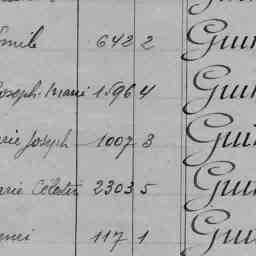 Emile 642 2 Gui
Joseph-Marie 1596 4 Gui
Marie Joseph 1007 3 Gui
Marie Célestin 2303 5 Gui
117 1 Gui